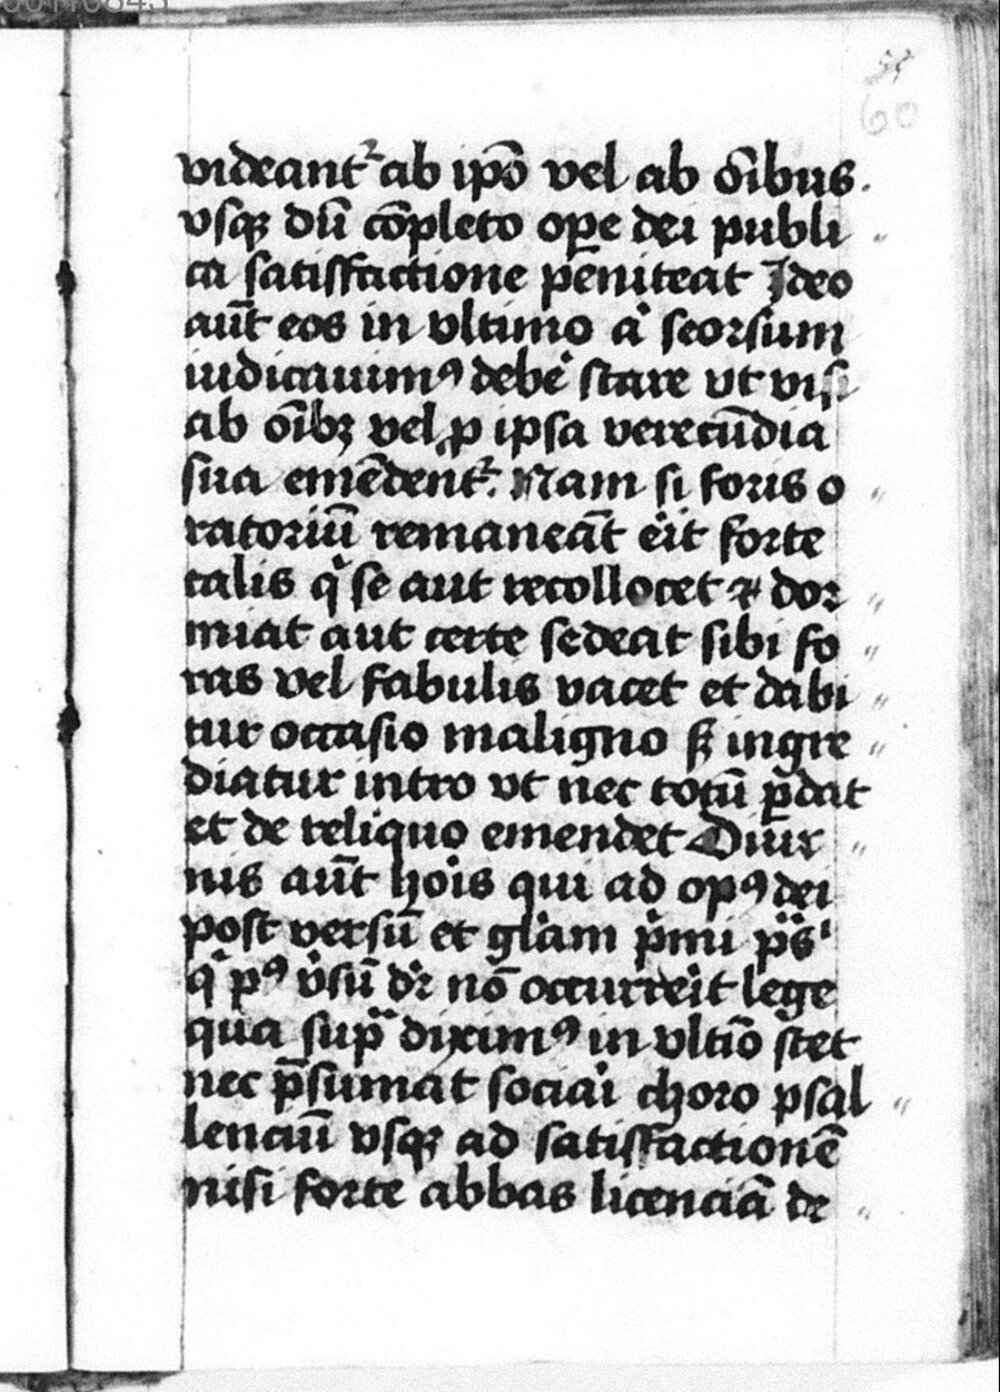 59
60
videant᷑ ab ip̄o vel ab oībus.
vsqꝫ dū cōpleto ope dei publi
ca satisffactione peniteat Ideo
aūt eos in vltimo aͥ seorsum
iudicauimꝰ debeͥ stare vt visi
ab oībꝫ vel ꝓ ipsa verecūdia
sua emēdent᷑. Nam si foris o
ratoriū remaneāt eͥit forte
talis qͥ se aut recollocet ⁊ dor
miat aut certe sedeat sibi fo
ras vel fabulis vacet et dabi
tur occasio maligno sꝫ ingre
diatur intro vt nec totū ꝑdat
et de reliquo emendet Diur
nis aūt hoīs qui ad opꝰ dei
post versū et glāam pͥmi pͣsͥ
qͥ pꝰ v̓sū drͥ nō occurreͥit lege
qua supͣ diximꝰ in vltīo stet
nec p̄sumat sociaͥi choro psal
lenciū vsqꝫ ad satisffactionē
nisi forte abbas licenciā de